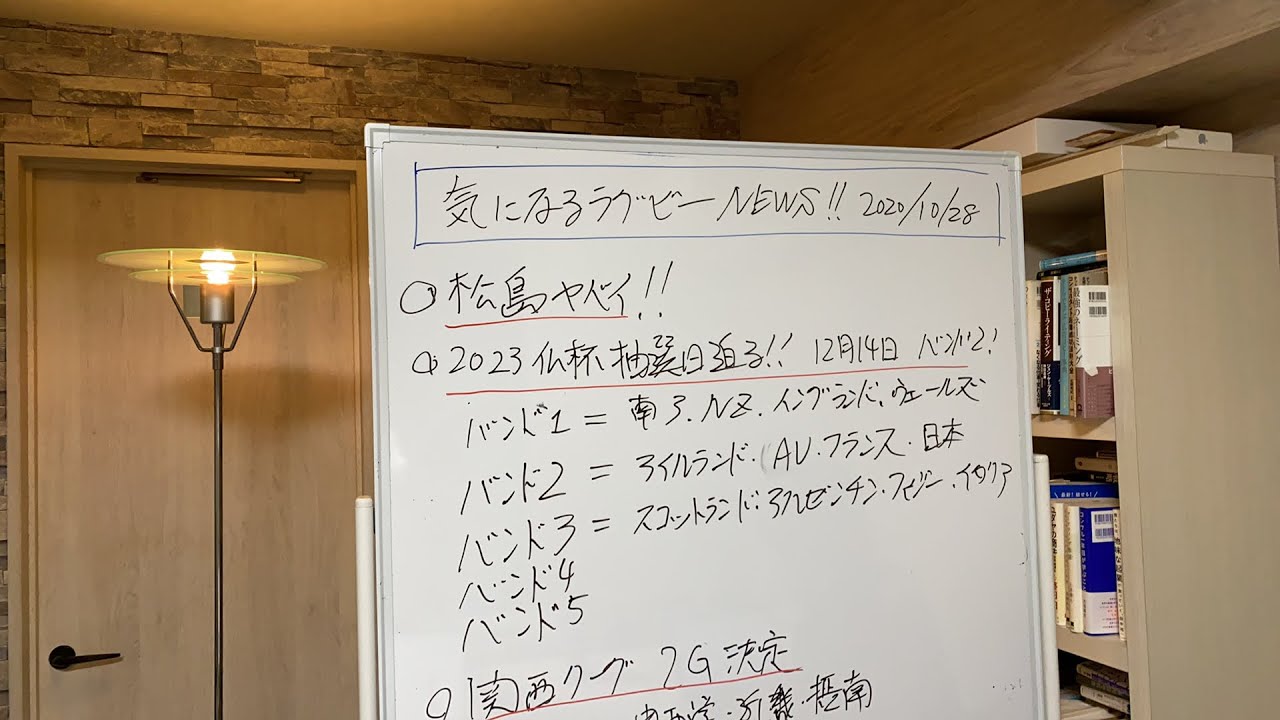 気になるラグビーNEWS!! 2020/10/28
○松島ヤバイ!!
○2023仏杯抽選日迫る!! 12月14日 バンド2!
バンド1 = 南ア.NZ.イングランド.ウェールズ
バンド2 = アイルランド.AU.フランス.日本
バンド3 = スコットランド.アルゼンチン.フィジー.イタリア
バンド4
バンド5
○関西リーグ 2G決定
近畿.摂南
ザ・コピーライティング
最強のネーミング